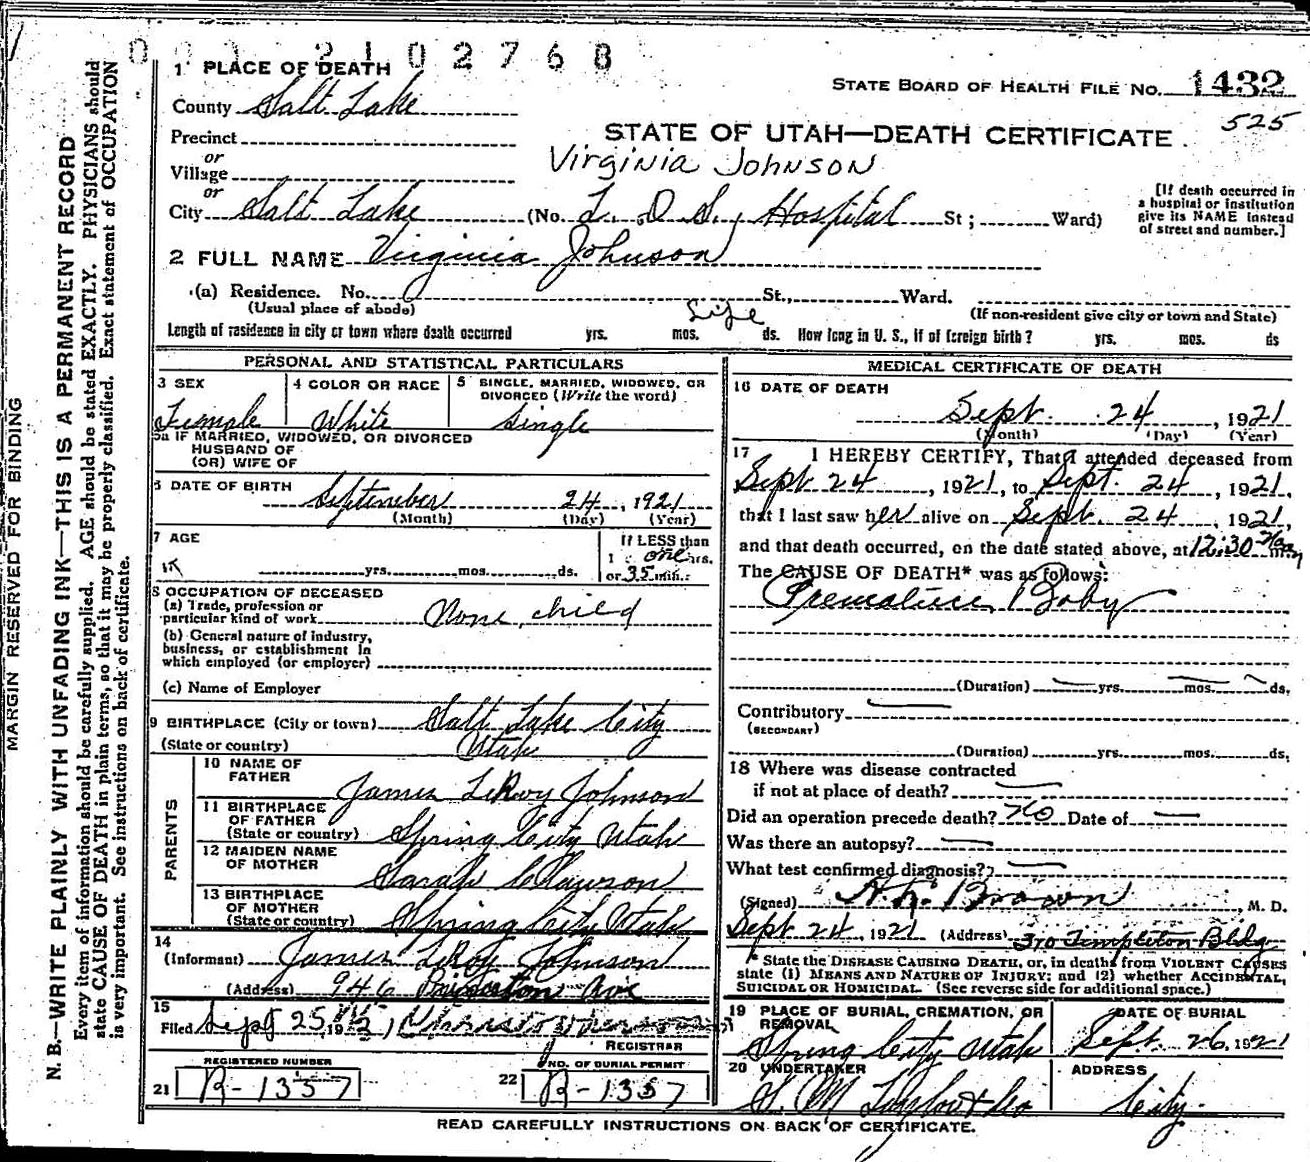 2102768
1 PLACE OF DEATH
STATE BOARD OF HEALTH FILE NO. 1432
525
County Salt Lake
STATE OF UTAH—DEATH CERTIFICATE
Precinct
or
Village
Virginia Johnson
or
City Salt Lake (No. L. D. S., Hospital St; Ward)
[If death occurred in a hospital or institution give its NAME instead of street and number.]
2 FULL NAME Virginia Johnson
(a) Residence. No. St., Ward.
(Usual place of abode) (If non-resident give city or town and State)
Life
Length of residence in city or town where death occurred yrs. mos. ds. How long in U. S., if of foreign birth? yrs. mos. ds
PERSONAL AND STATISTICAL PARTICULARS
3 SEX Female
4 COLOR OR RACE White
5 SINGLE, MARRIED, WIDOWED, OR DIVORCED (Write the word) Single
5a IF MARRIED, WIDOWED, OR DIVORCED
HUSBAND OF
(OR) WIFE OF
6 DATE OF BIRTH September 24, 1921
(Month) (Day) (Year)
7 AGE yrs. mos. ds.
If LESS than
1 one hrs.
or 35 min.
8 OCCUPATION OF DECEASED
(a) Trade, profession or
particular kind of work None, child
(b) General nature of industry,
business, or establishment in
which employed (or employer)
(c) Name of Employer
9 BIRTHPLACE (City or town) Salt Lake City
(State or country) Utah
PARENTS
10 NAME OF
FATHER James LeRoy Johnson
11 BIRTHPLACE
OF FATHER
(State or country) Spring City Utah
12 MAIDEN NAME
OF MOTHER Sarah Clawson
13 BIRTHPLACE
OF MOTHER
(State or country) Spring City Utah
14
(Informant) James LeRoy Johnson
(Address) 946 Princeton Ave
15
Filed Sept 25, 192
REGISTRAR
REGISTERED NUMBER
21 R-1357
NO. OF BURIAL PERMIT
22 R-1357
MEDICAL CERTIFICATE OF DEATH
16 DATE OF DEATH
Sept. 24, 1921
(Month) (Day) (Year)
17 I HEREBY CERTIFY, That I attended deceased from
Sept 24, 1921, to Sept. 24, 1921,
that I last saw her alive on Sept. 24, 1921,
and that death occurred, on the date stated above, at 12:30
The CAUSE OF DEATH* was as follows:
Premature Baby
(Duration) yrs. mos. ds.
Contributory
(SECONDARY)
(Duration) yrs. mos. ds.
18 Where was disease contracted
if not at place of death?
Did an operation precede death? No Date of
Was there an autopsy?
What test confirmed diagnosis?
(Signed) Brown, M. D.
Sept 24, 1921 (Address) 310 Templeton Bldg
* State the DISEASE CAUSING DEATH, or, in deaths from VIOLENT CAUSES
state (1) MEANS AND NATURE OF INJURY; and (2) whether ACCIDENTAL,
SUICIDAL OR HOMICIDAL. (See reverse side for additional space.)
19 PLACE OF BURIAL, CREMATION, OR
REMOVAL
Spring City Utah
DATE OF BURIAL
Sept. 26, 1921
20 UNDERTAKER
ADDRESS
City.
READ CAREFULLY INSTRUCTIONS ON BACK OF CERTIFICATE.
MARGIN RESERVED FOR BINDING
N. B.—WRITE PLAINLY WITH UNFADING INK—THIS IS A PERMANENT RECORD
Every item of information should be carefully supplied. AGE should be stated EXACTLY. PHYSICIANS should
state CAUSE OF DEATH in plain terms, so that it may be properly classified. Exact statement of OCCUPATION
is very important. See instructions on back of certificate.